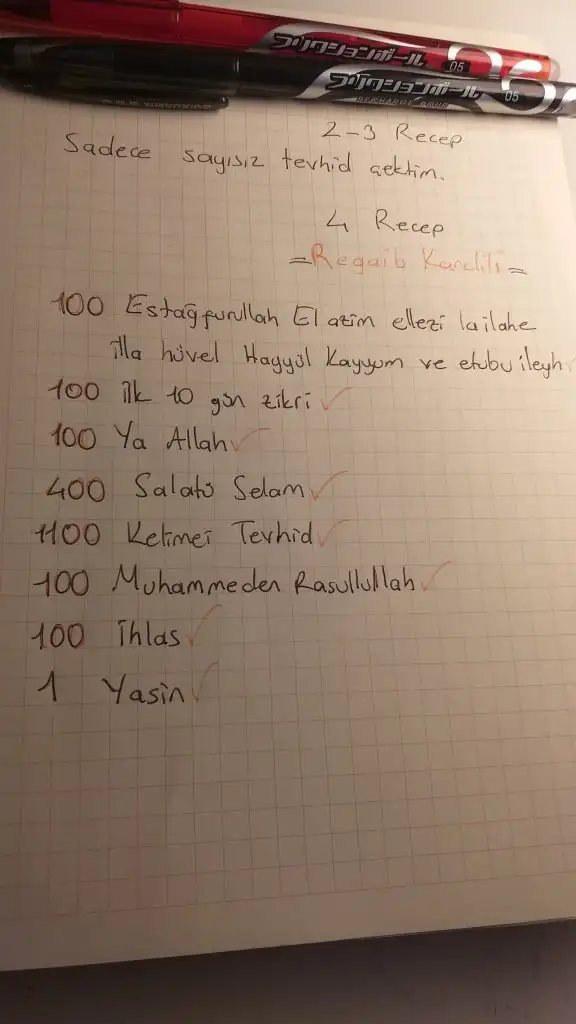 フリクションボール 05
フリクションボール 05
2-3 Recep
Sadece sayısız tevhid çektim.
4 Recep
=Regaib Kandili=
100 Estağfurullah El azim ellezi lailahe
illa hüvel Hayyül Kayyum ve etubu ileyh
100 ilk 10 gün zikri ✓
100 Ya Allah ✓
400 Salatü Selam ✓
1100 Kelimei Tevhid ✓
100 Muhammeden Rasullullah ✓
100 İhlas ✓
1 Yasin ✓